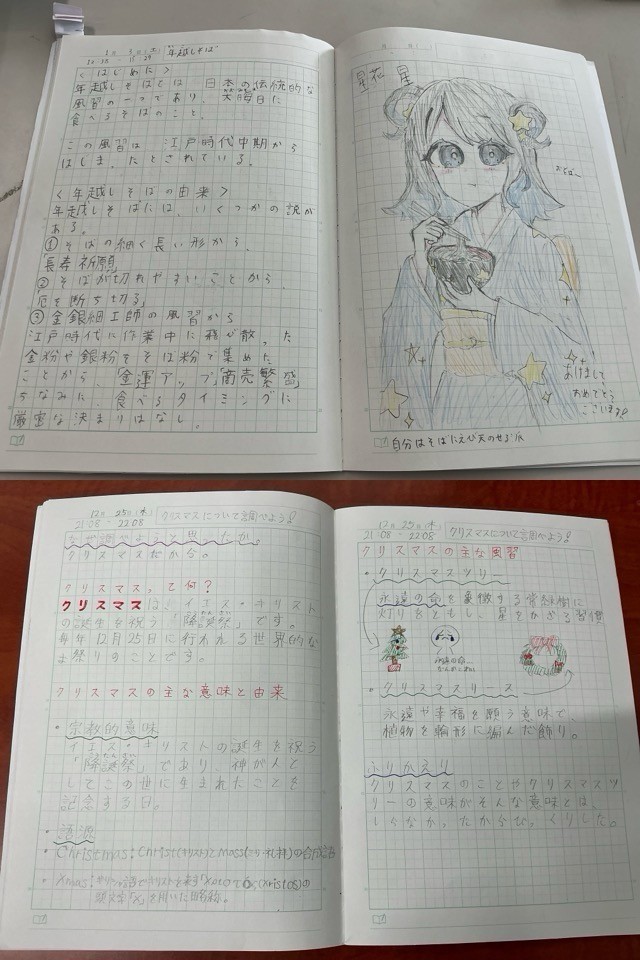 年越しそば
<はじめに>
年越しそばとは、日本の伝統的な
風習の一つであり、大晦日に
食べるそばのこと。
この風習は、江戸時代中期から
はじまったとされている。
<年越しそばの由来>
年越しそばには、いくつかの説が
ある。
①そばの細く長い形から、
「長寿祈願」
②そばが切れやすいことから、
「厄を断ち切る」
③金銀細工師の風習から
江戸時代に作業中に飛び散った
金粉や銀粉をそば粉で集めた
ことから、「金運アップ」「商売繁盛」
ちなみに、食べるタイミングに
厳密な決まりはなし。
あけまして
おめでとう
ございます!
自分はそばにえび天のせる派
12月25日(木)
21:08-22:08
クリスマスについて調べよう!
なぜ調べようと思ったか。
クリスマスだから。
クリスマスって何?
クリスマスは、イエス・キリスト
の誕生を祝う「降誕祭」です。
毎年12月25日に行われる世界的な
お祭りのことです。
クリスマスの主な意味と由来
・宗教的意味
イエス・キリストの誕生を祝う
「降誕祭」であり、神が人と
してこの世に生まれたことを
記念する日。
・語源
・Christmas:Christ(キリスト)とmass(ミサ・礼拝)の合成語
・Xmas:ギリシャ語でキリストを表す
頭文字「X」を用いた略名称。
12月25日(木)
21:08-22:08
クリスマスについて調べよう!
クリスマスの主な風習
・クリスマスツリー
永遠の命を象徴する常緑樹に
灯りをともし、星をかざる習慣
・クリスマスリース
永遠や幸福を願う意味で、
植物を輪形に編んだ飾り。
ふりかえり
クリスマスのことやクリスマスツ
リーの意味がそんな意味とは、
しらなかったからびっくりした。